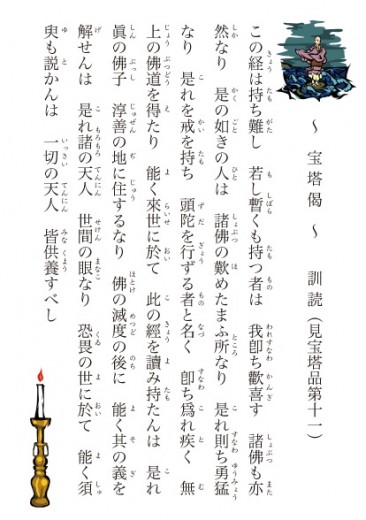 ～ 宝塔偈 ～ 訓読（見宝塔品第十一）
この経は持ち難し 若し暫くも持つ者は 我即ち歡喜す 諸佛も亦
然なり 是の如きの人は 諸佛の歎めたまふ所なり 是れ則ち勇猛
なり 是れを戒を持ち 頭陀を行ずる者と名く 即ち爲れ疾く 無
上の佛道を得たり 能く來世に於て 此の經を讀み持たんは 是れ
眞の佛子 淳善の地に住するなり 佛の滅度の後に 能く其の義を
解せんは 是れ諸の天人 世間の眼なり 恐畏の世に於て 能く須
臾も説かんは 一切の天人 皆供養すべし